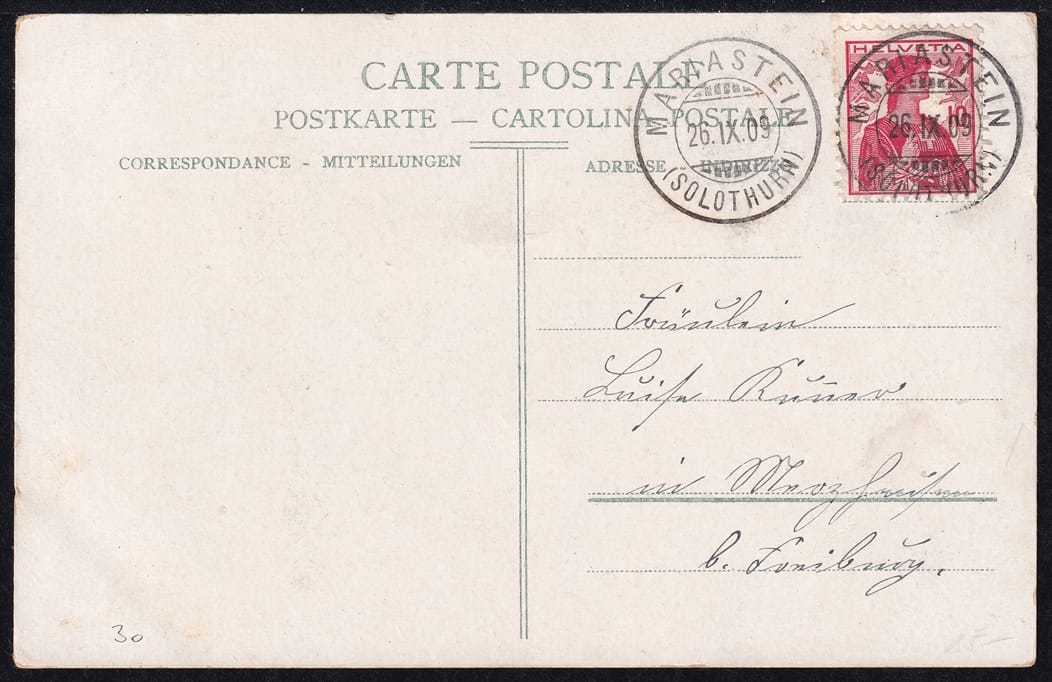 CARTE POSTALE
POSTKARTE — CARTOLINA POSTALE
CORRESPONDANCE - MITTEILUNGEN
ADRESSE - INDIRIZZO
MARIASTEIN
26.IX.09
(SOLOTHURN)
HELVETIA
10
MARIASTEIN
26.IX.09
(SOLOTHURN)
Fräulein
Luise
in Merzhausen
b. Freiburg.
30